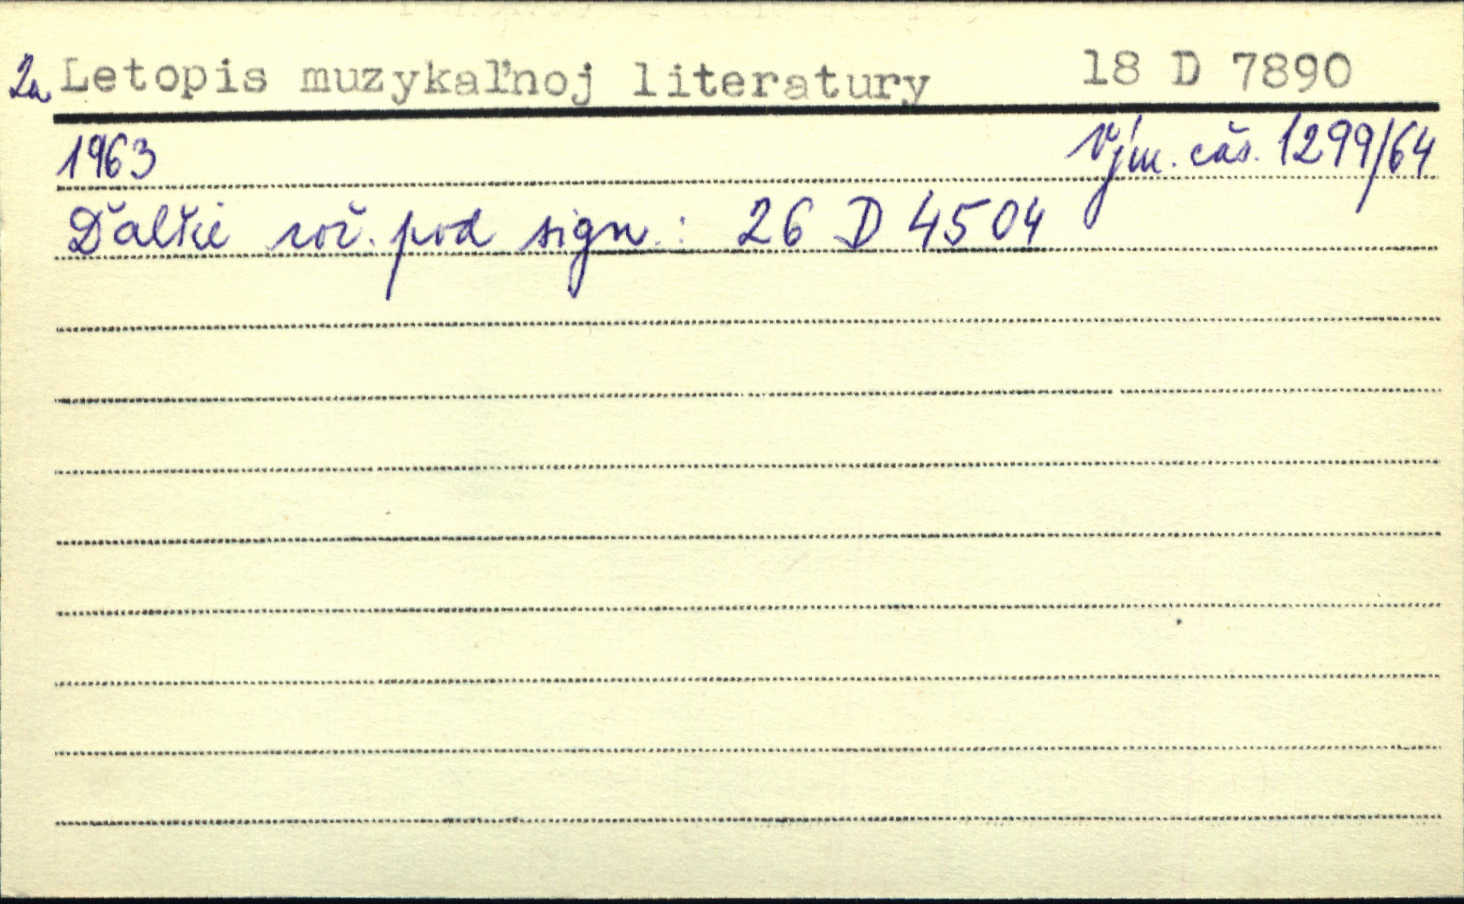 2a Letopis muzykaľnoj literatury 18 D 7890
1963 Vým. čas. 1299/64
Ďalšie roč. pod sign.: 26 D 4504